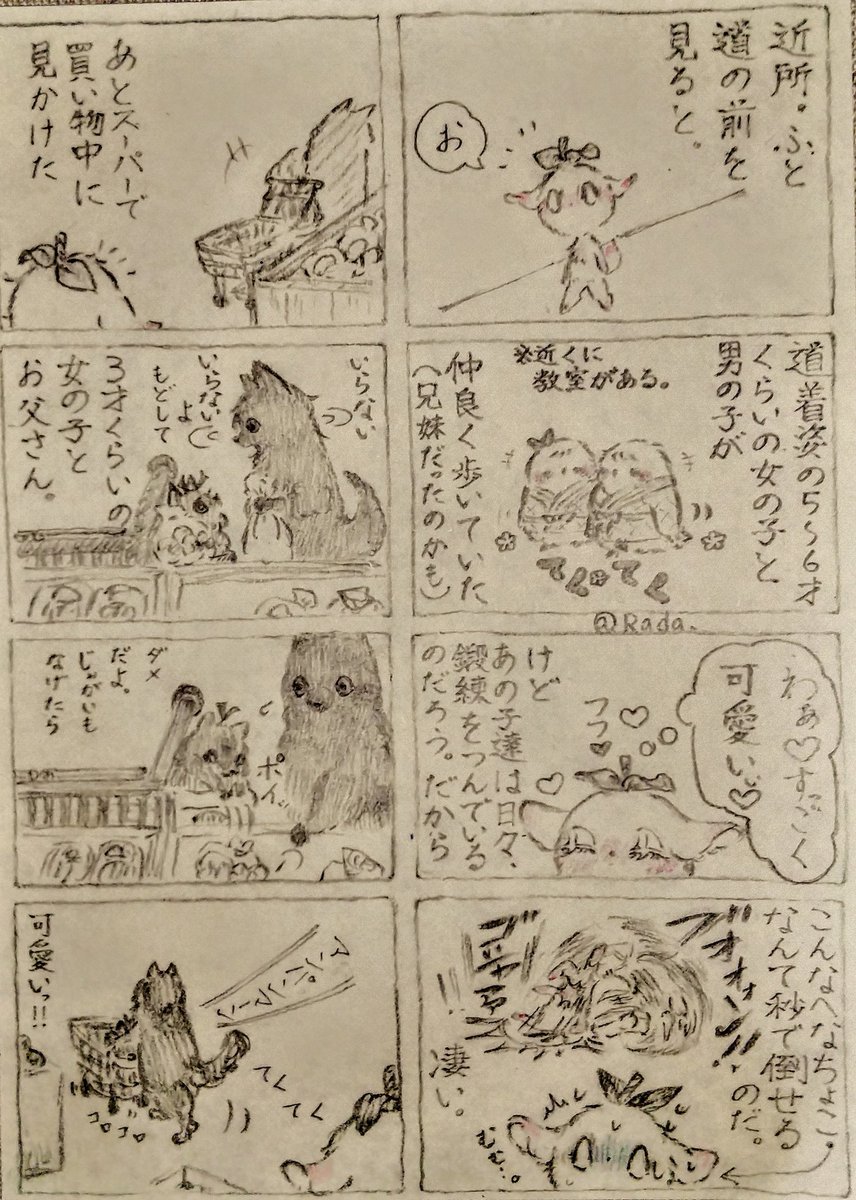 近所。ふと
道の前を
見ると。
お
道着姿の5〜6才
くらいの女の子と
男の子が
※近くに
教室がある。
仲良く歩いていた
(兄妹だったのかも)
てくてく
@Rada.
わぁ♡すごく
可愛い♡
フフ
けど
あの子達は日々、
鍛練をつんでいる
のだろう。だから
こんなへなちょこ。
なんて秒で倒せる
のだ。
ブオォン!!
凄い。
あとスーパーで
買い物中に
見かけた
いらない
いらない
よ
もどして
3才くらいの
女の子と
お父さん。
ポイッ
ダメ
だよ。
じゃがいも
なげたら
アンパンマーン
てくてく
コロコロ
可愛いっ!!